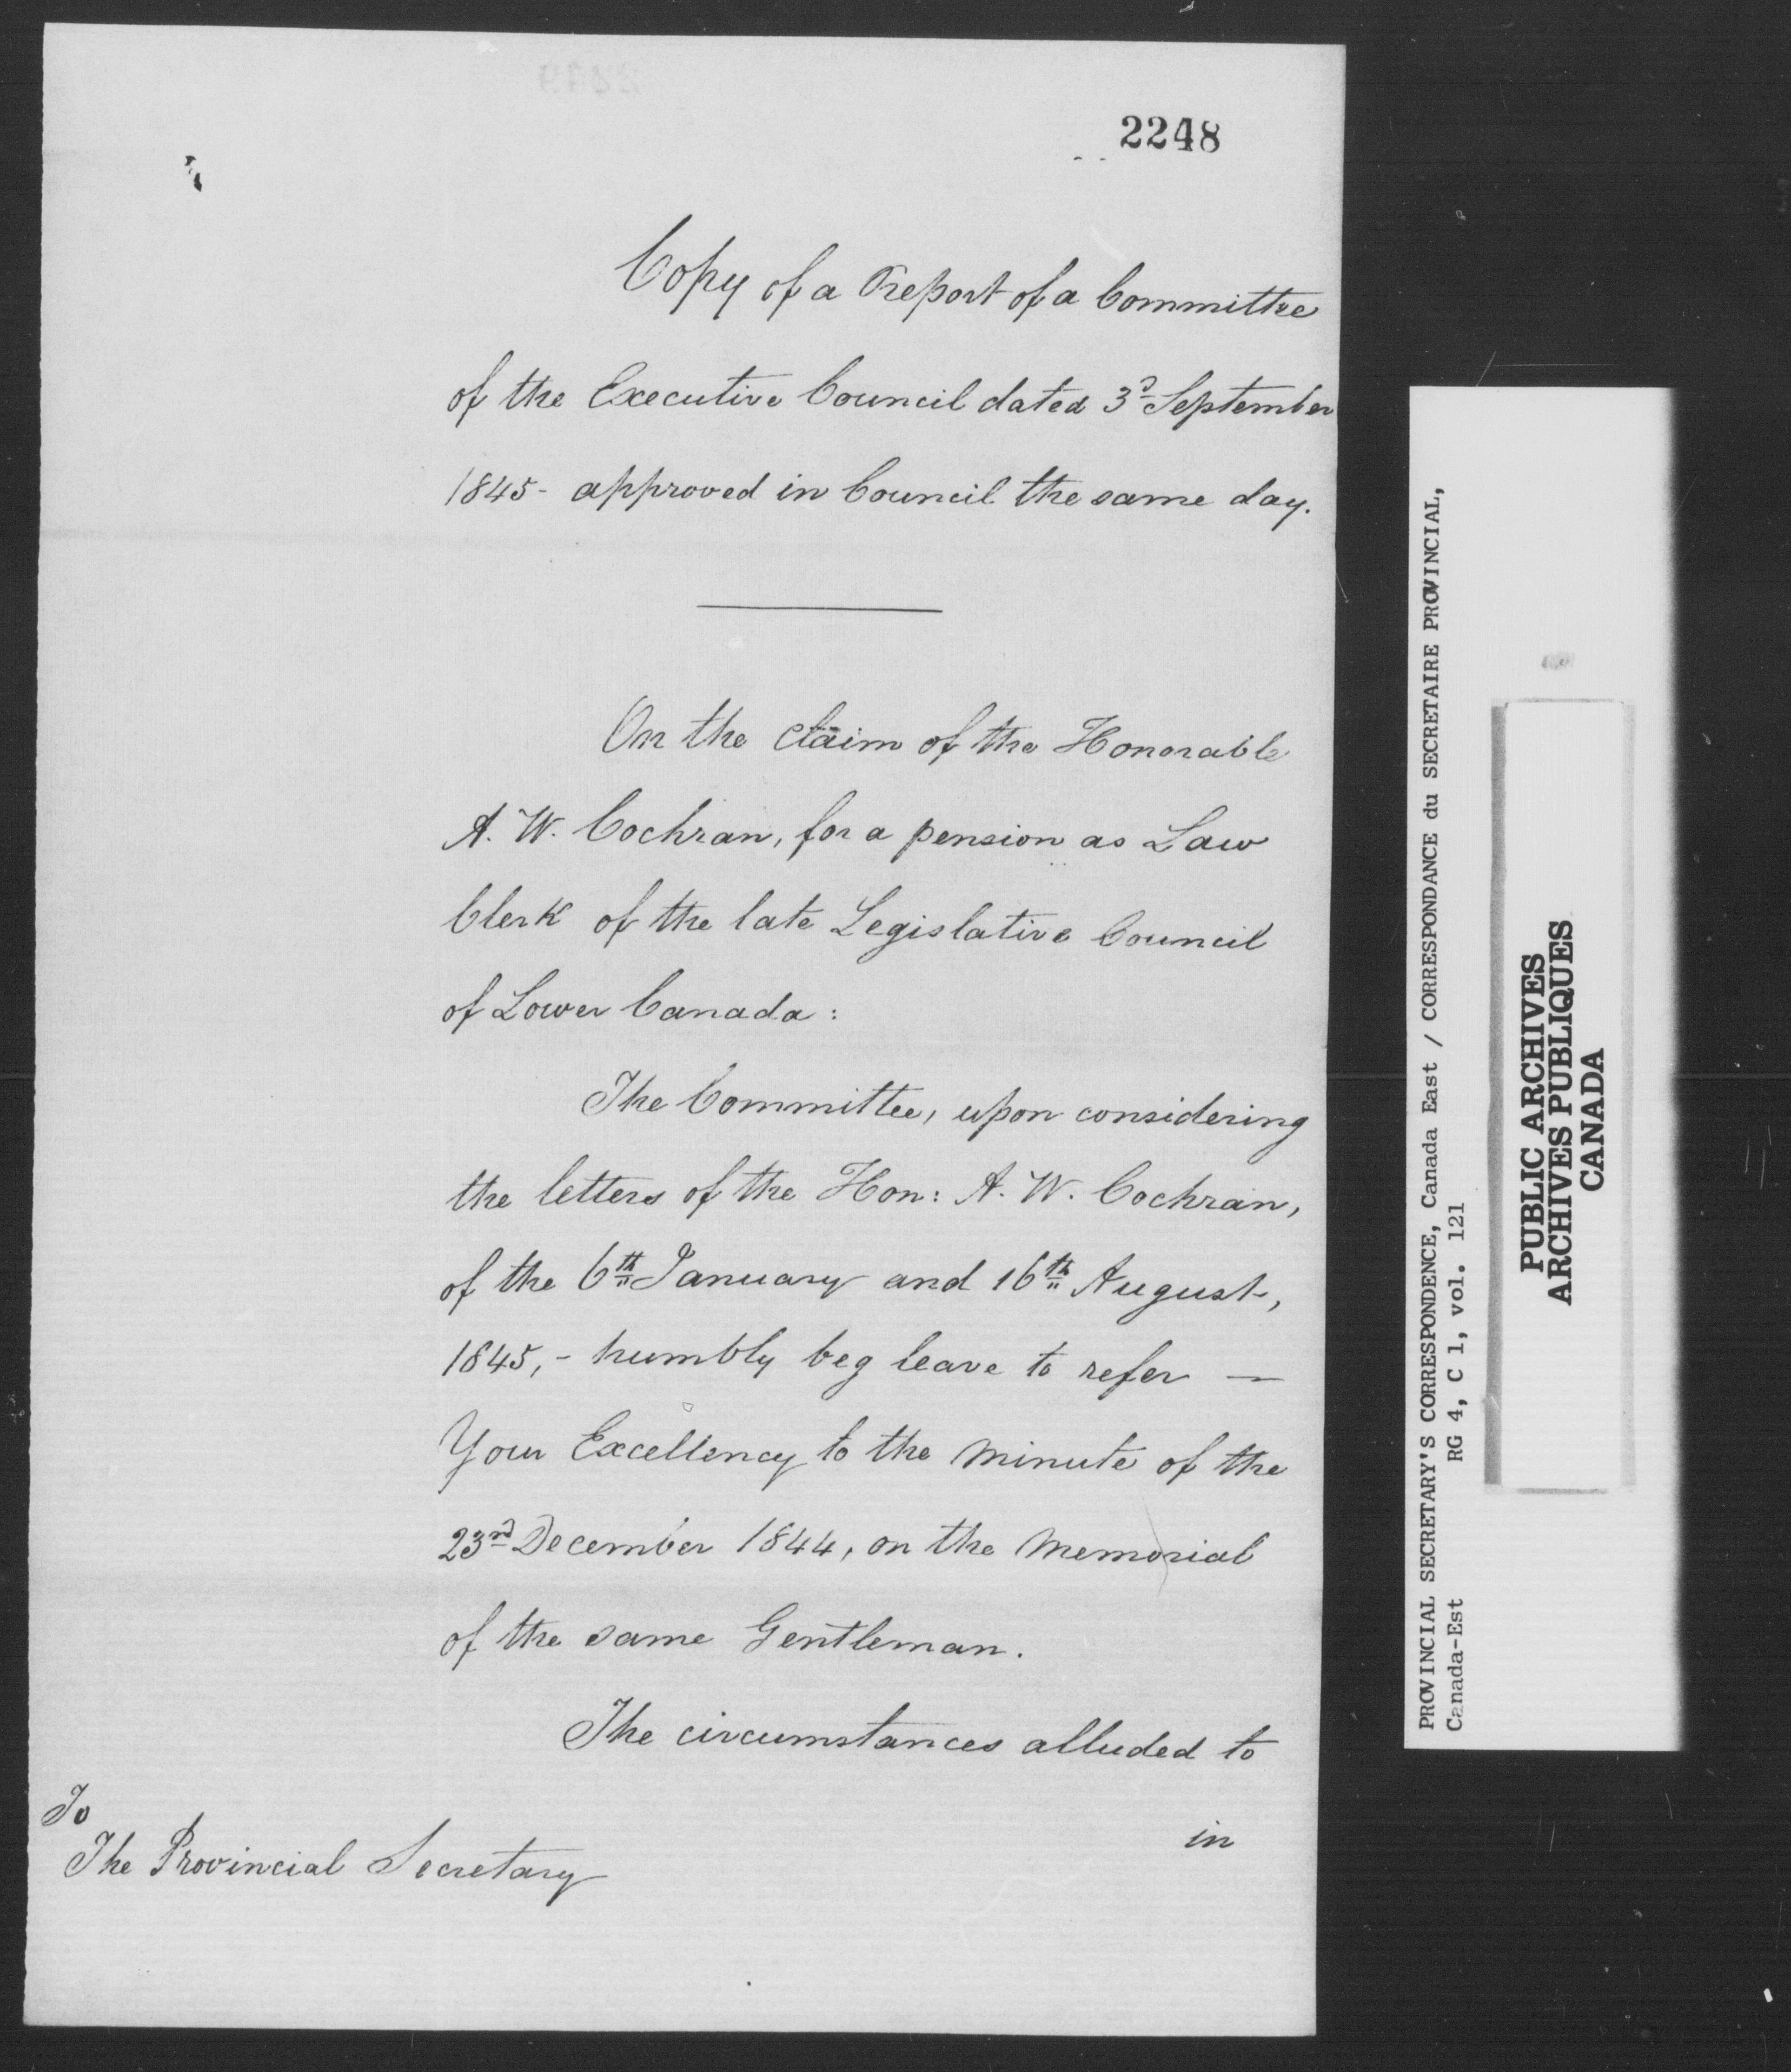 2248
Copy of a Report of a Committee
of the Executive Council dated 3d September
1845 - approved in Council the same day.
On the claim of the Honorable
A. W. Cochran, for a pension as Law
Clerk of the late Legislative Council
of Lower Canada:
The Committee, upon considering
the letters of the Hon: A. W. Cochran,
of the 6th January and 16th August,
1845, - humbly beg leave to refer —
Your Excellency to the Minute of the
23rd December 1844, on the Memorial
of the same Gentleman.
The circumstances alluded to
in
To
The Provincial Secretary
PROVINCIAL SECRETARY'S CORRESPONDENCE, Canada East / CORRESPONDANCE du SECRETAIRE PROVINCIAL,
Canada-Est RG 4, C 1, vol. 121
PUBLIC ARCHIVES
ARCHIVES PUBLIQUES
CANADA